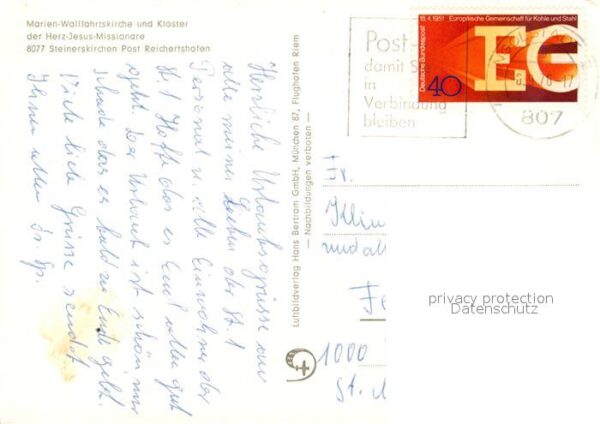 Marien-Wallfahrtskirche und Kloster
der Herz-Jesus-Missionare
8077 Steinerskirchen Post Reichertshofen
Herzliche Urlaubsgrüsse
alle meine der St. 1
Personal u. alle Einwohner der
St. Hoffe das es Euch allen gut
geht. Der Urlaub ist schön nur
schade das es bald zu Ende geht.
Viele liebe Grüsse sendet
Ihnen allen Fr. Sp.
Luftbildverlag Hans Bertram GmbH, München 87, Flughafen Riem
— Nachbildungen verboten —
18.4.1951 Europäische Gemeinschaft für Kohle und Stahl
Deutsche Bundespost
EG
40
Post-
damit S
in
Verbindung
bleiben
76-17
807
Fr.
Klin
1000
St.
privacy protection
Datenschutz